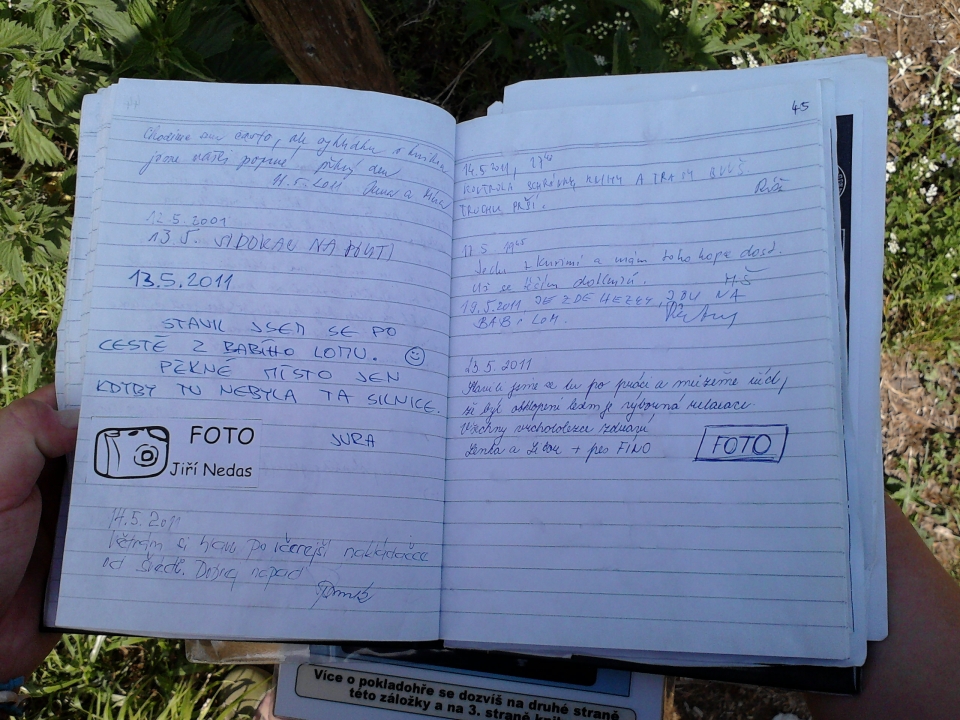 44
Chodíme sem často, ale vyhlídku a knihu
jsme našli poprvé, pěkný den
11.5.2011
12.5.2001
13.5. VIDOKAL NA POUTI
13.5.2011
STAVIL JSEM SE PO
CESTĚ Z BABÍHO LOMU. ☺
PĚKNÉ MÍSTO JEN
KDYBY TU NEBYLA TA SILNICE.
FOTO
Jiří Nedas
JURA
14.5.2011
Větrám si hlavu po včerejší nakládačce
od Dobrej nápad
45
14.5.2011, 17
KONTROLA SCHRÁNKY, KNIHY A
TROCHU PRŠÍ.
17.5. 19
Jedu z Kuřimi a mám toho kopce dost.
Už se těším dolů. MŠ
19.5.2011, JE ZDE HEZKY, JDU NA
BABÍ LOM.
23.5.2011
Stavili jsme se tu po práci a můžeme říct,
že být obklopeni lesem je výborná relaxace.
Všechny vrchololezce zdraví
Lenka a Libor + pes FÍNO
FOTO
Více o pokladohře se dozvíš na druhé straně
této záložky a na 3. straně